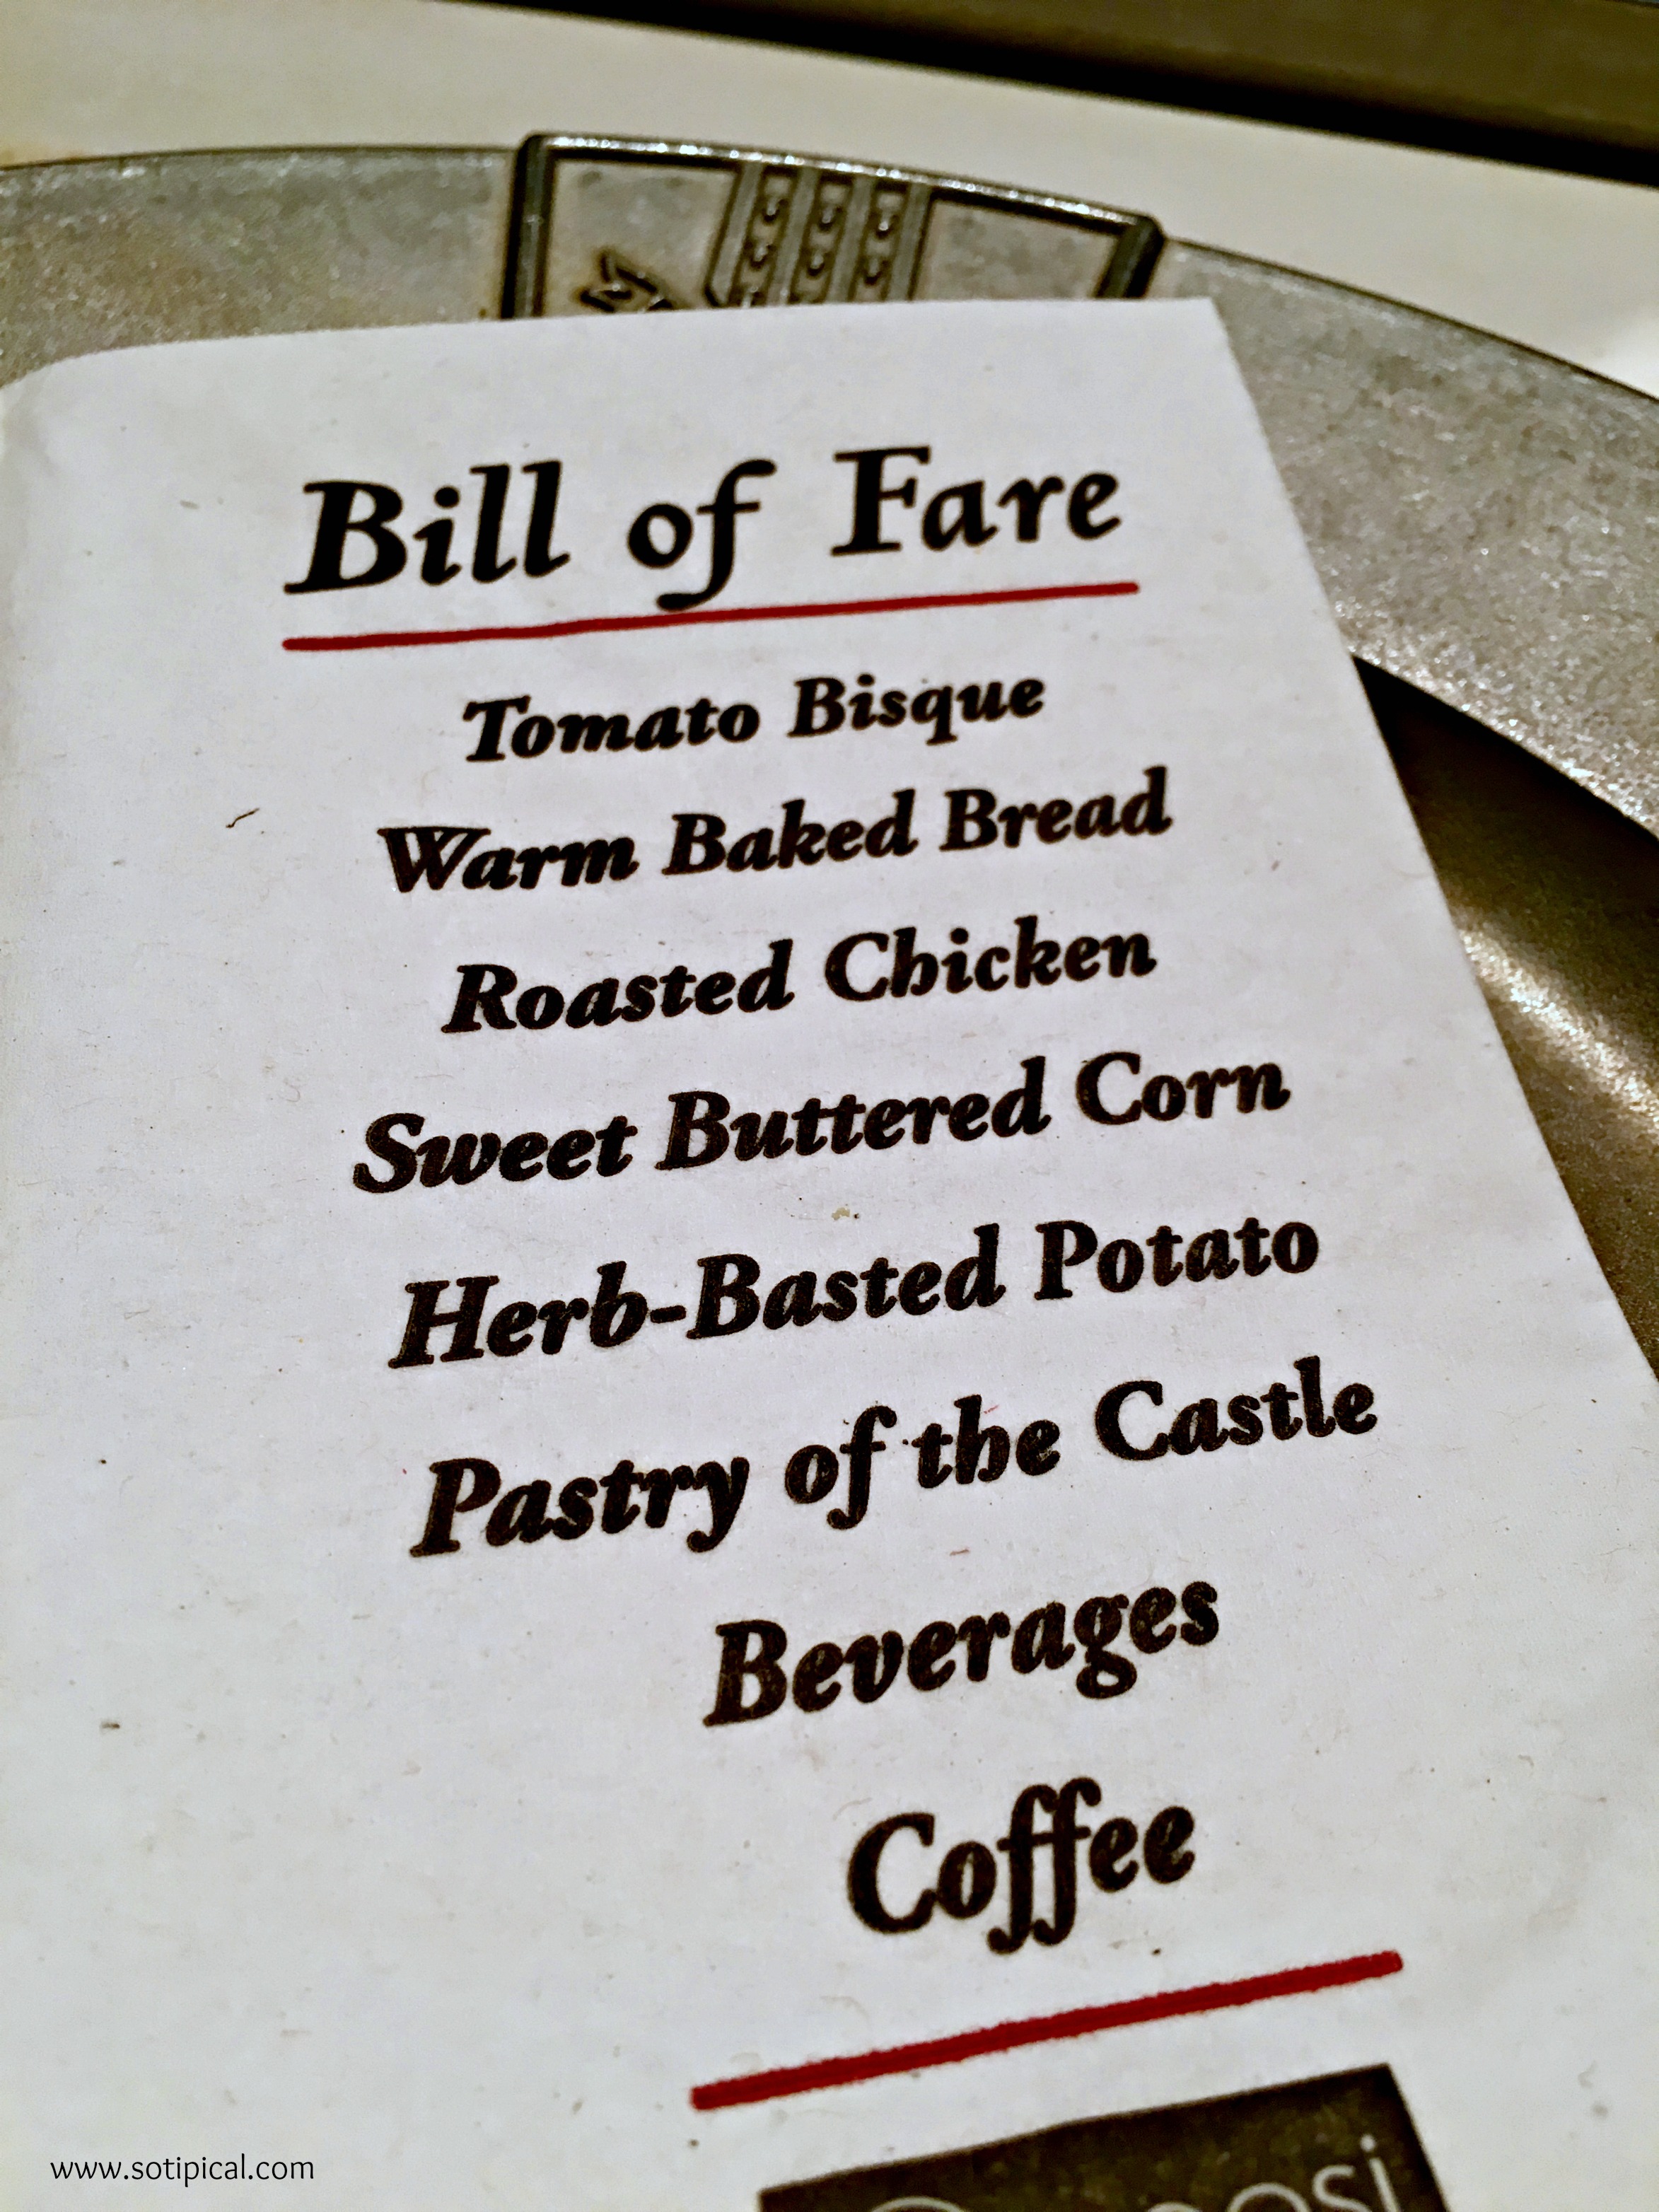 Bill of Fare
Tomato Bisque
Warm Baked Bread
Roasted Chicken
Sweet Buttered Corn
Herb-Basted Potato
Pastry of the Castle
Beverages
Coffee
www.sotipical.com